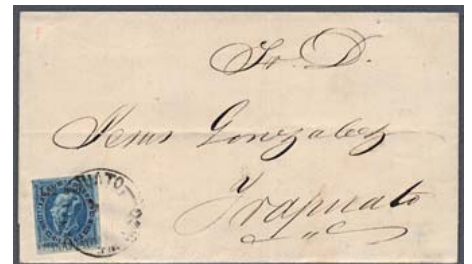 Sr. D.
Jesus Gonzalez
Yrapuato